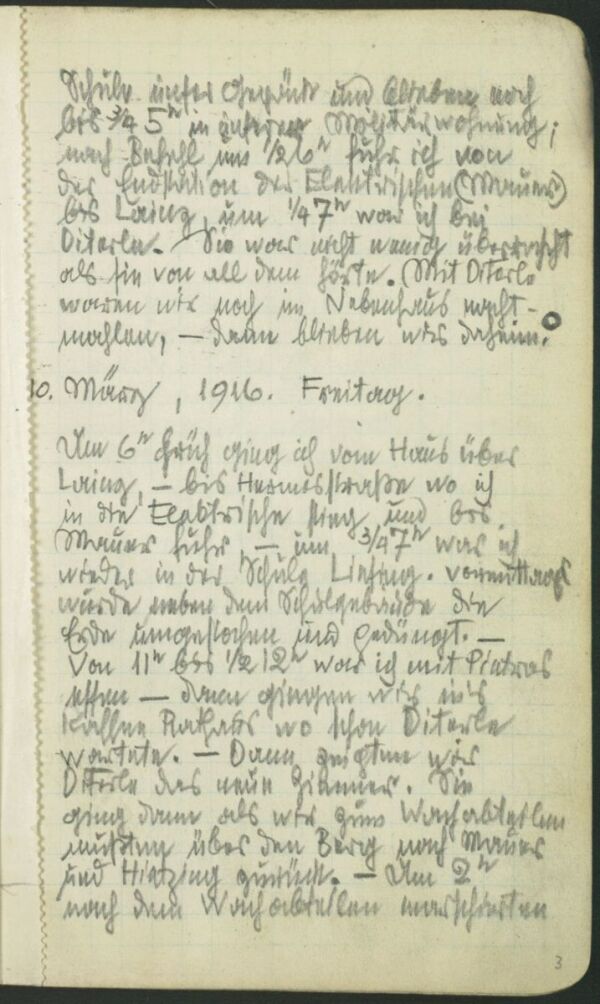 Schule unser Gepäck und blieben noch
bis 3/4 5h in unserer Militärwohnung;
nach Befehl um 1/2 6h fuhr ich von
der Endstation der Elektrischen (Mauer)
bis Lainz, um 1/4 7h war ich bei
Diterle. – Sie war nicht wenig überrascht
als sie von all dem hörte. (Mit Diterle
waren wir noch im Nebenhaus nacht-
mahlen, – dann blieben wir daheim.
10. März, 1916. Freitag.
Um 6h früh ging ich vom Haus über
Lainz, – bis Hermesstraße wo ich
in die Elektrische stieg und bis
Mauer fuhr, – um 3/4 7h war ich
wieder in der Schule Liesing. vormittags
wurde neben dem Schulgebäude die
Erde umgestochen und gedüngt. –
Von 11h bis 1/2 12h war ich mit
essen – dann gingen wir ins
Kaffee Rathaus wo schon Diterle
wartete. – Dann zeigten wir
Diterle das neue Zimmer. Sie
ging dann als wir zum Wachabteilen
mußten über den Berg nach Mauer
und Hietzing zurück. – Um 2h
nach dem Wachabteilen marschierten
3